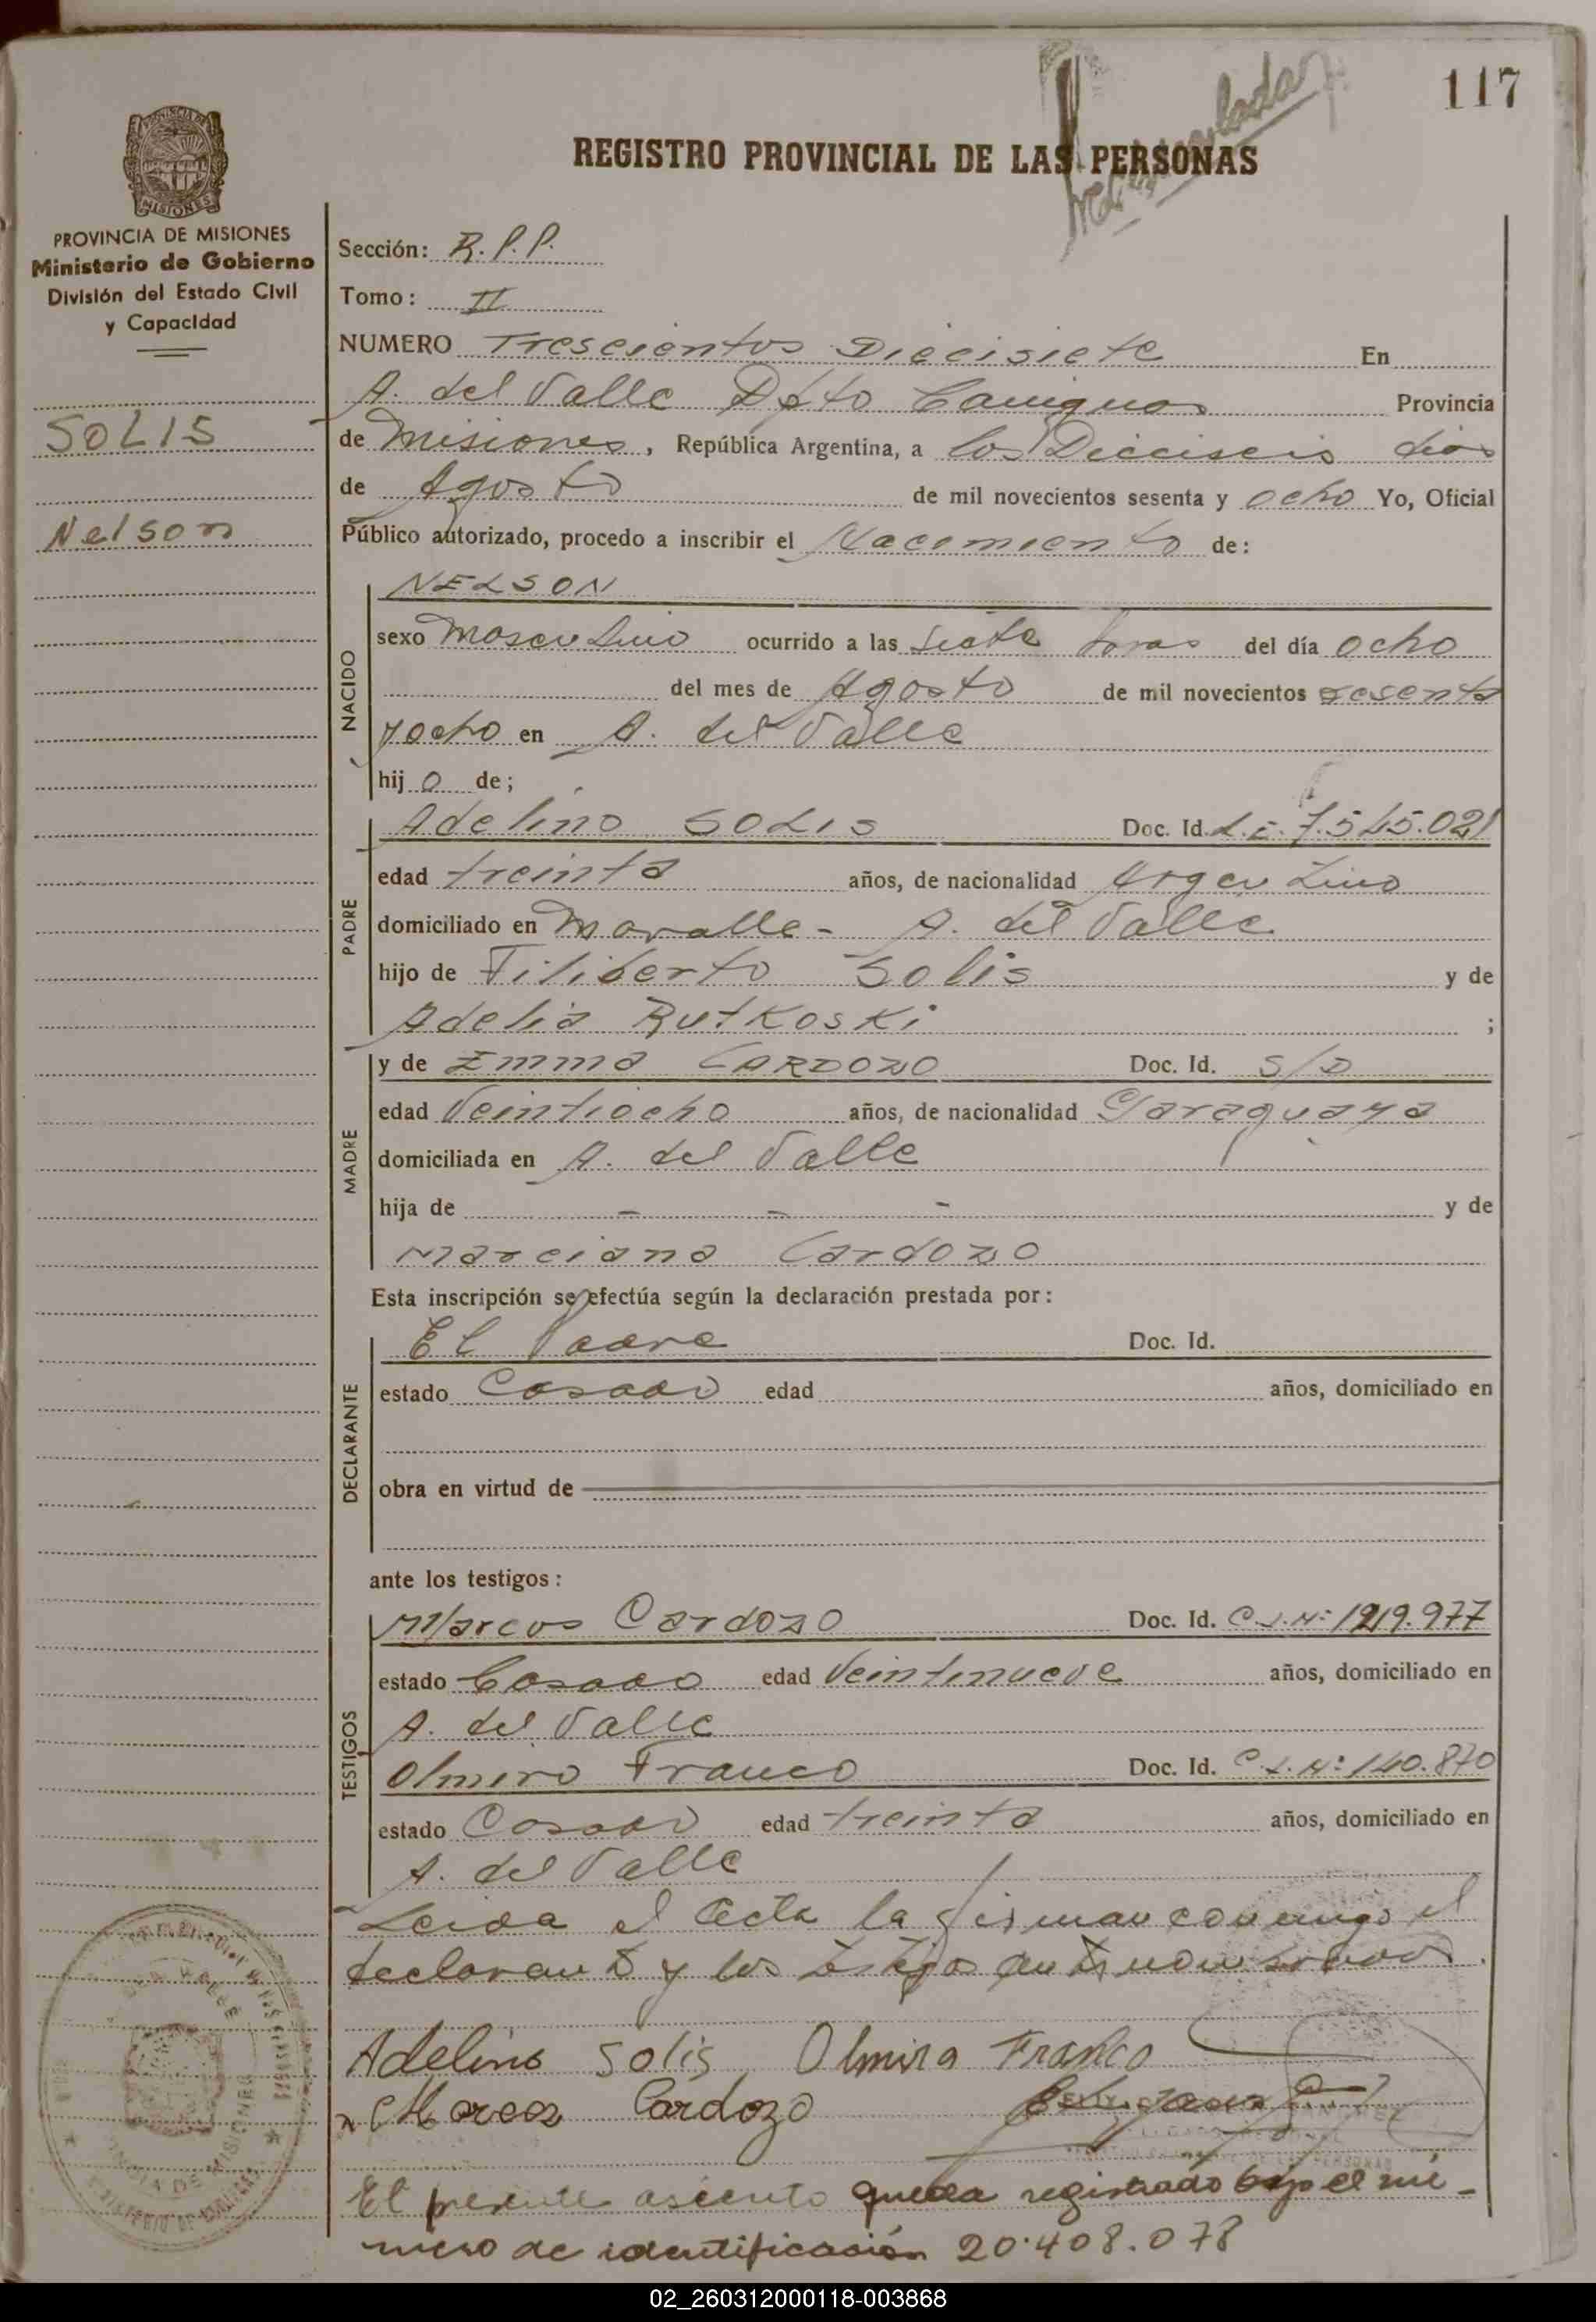 117
Matriculado
REGISTRO PROVINCIAL DE LAS PERSONAS
MISIONES
PROVINCIA DE MISIONES
Ministerio de Gobierno
División del Estado Civil
y Capacidad
SOLIS
Nelson
Sección: R.P.P.
Tomo: II
NUMERO Trescientos Diecisiete En
A. del Valle Dpto Cainguas Provincia
de Misiones, República Argentina, a los Dieciseis dias
de Agosto de mil novecientos sesenta y ocho Yo, Oficial
Público autorizado, procedo a inscribir el Nacimiento de:
NACIDO
NELSON
sexo Masculino ocurrido a las siete horas del día ocho
del mes de Agosto de mil novecientos sesenta
y ocho en A. del Valle
hijo de;
PADRE
Adelino SOLIS Doc. Id. L.E. 7.545.021
edad treinta años, de nacionalidad Argentino
domiciliado en Moralle - A. del Valle
hijo de Filiberto Solis y de
Adelia Rutkoski ;
MADRE
y de Emma CARDOZO Doc. Id. S/D
edad Veintiocho años, de nacionalidad Paraguaya
domiciliada en A. del Valle
hija de - - - y de
Marciana Cardozo
Esta inscripción se efectúa según la declaración prestada por:
DECLARANTE
El Padre Doc. Id.
estado Casado edad años, domiciliado en
obra en virtud de
ante los testigos:
TESTIGOS
Marcos Cardozo Doc. Id. C.I.Nº 1219.977
estado Casado edad Veintinueve años, domiciliado en
A. del Valle
Olmiro Franco Doc. Id. C.I.Nº 140.870
estado Casado edad treinta años, domiciliado en
A. del Valle
Leida el Acta la firman conmigo el
declarante y los testigos antes nombrados.
Adelino Solis Olmiro Franco
Marcos Cardozo
El presente asiento queda registrado bajo el nú-
mero de identificación 20.408.078
02_260312000118-003868